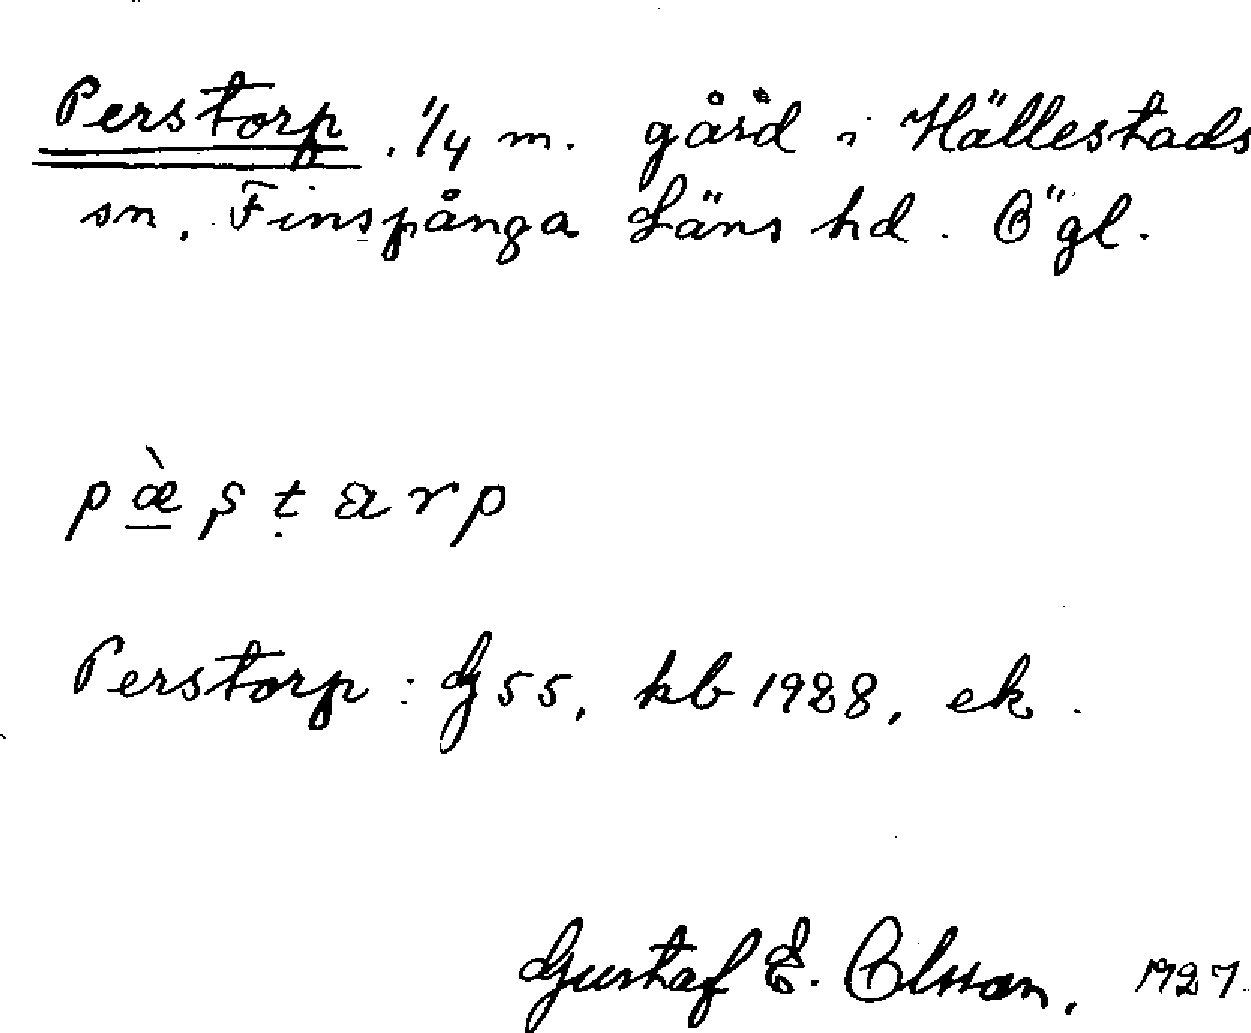 Perstorp. 1/4 m. gård i Hällestads
sn. Finspånga Läns hd. Ögl.
pæ̀ṣṭarp
Perstorp: G 55, kb 1928, ek.
Gustaf E. Olsson, 1927.